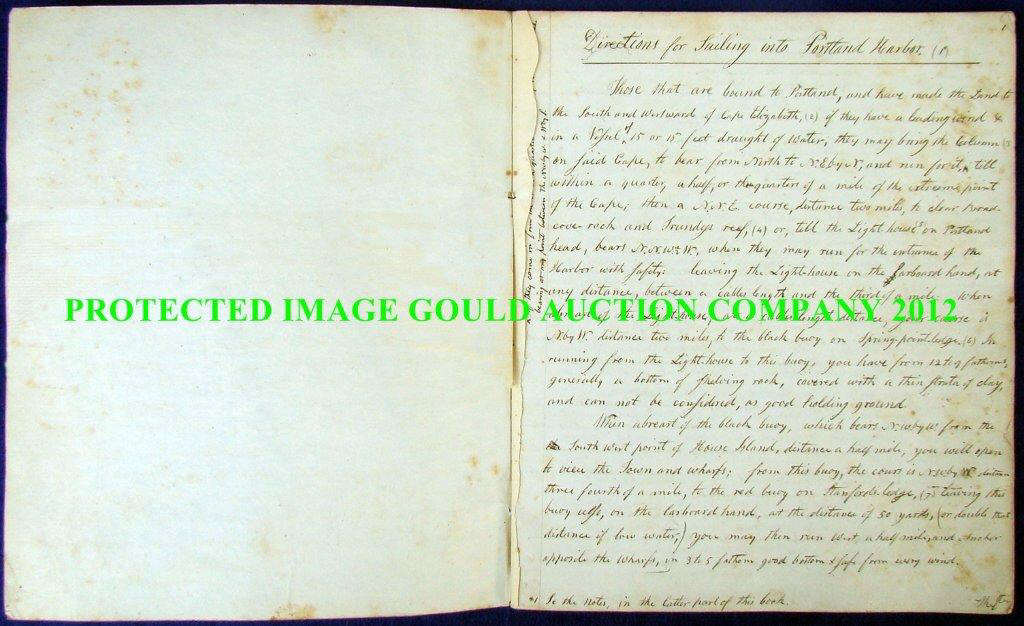 Directions for Sailing into Portland Harbor. (1)
Those that are bound to Portland, and have made the Land to
the South and Westward of Cape Elizabeth, (2) if they have a leading wind &
in a Vessel of 15 or 18 feet draught of Water, they may bring the Column (3
on said Cape, to bear from North to N.E by N, and run for it, till
within a quarter, a half, or three quarters of a mile of the extreme point
of the Cape; then a N.N.E. course, distance two miles, to clear Broad-
cove rock and Trundys reef, (4) or, till the Light house (5) on Portland
head, bears N.N.W.t W, when they may run for the entrance of the
Harbor with safety: leaving the Light-house on the Larboard hand, at
any distance, between a cables length and the third of a mile. When
abreast of the Light house, at a cables lenght distance, your course is
N.by W. distance two miles, to the black buoy on Spring-point ledge, (6) In
running from the Light-house to this buoy, you have from 12 to 9 fathoms,
generally, a bottom of shelving rock, covered with a thin strata of clay,
and can not be considered, as good holding ground.
When abreast of the black buoy, which bears N.W.by W. from the
South West point of House Island, distance a half mile, you will open
to view the Town and wharfs; from this buoy, the cours is N.W.by W. distance
three fourth of a mile, to the red buoy on Stanfords ledge, (7) leaving this
buoy also, on the larboard hand, at the distance of 50 yards, (or double that
distance if low water,) you may then run West a half mile, and Anchor
opposite the Wharfs, in 3 to 5 fathom good bottom & safe from every wind.
*1 Se the Notes, in the latter part of this book.
PROTECTED IMAGE GOULD AUCTION COMPANY 2012